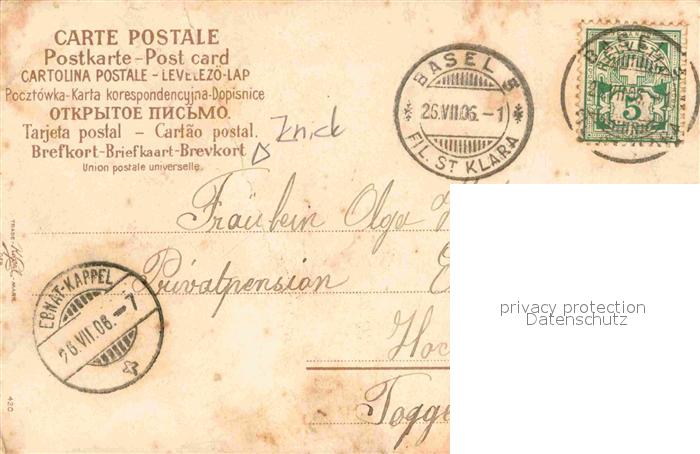 CARTE POSTALE
Postkarte-Post card
CARTOLINA POSTALE-LEVELEZŐ-LAP
Pocztówka-Karta korespondencyjna-Dopisnice
ОТКРЫТОЕ ПИСЬМО.
Tarjeta postal – Cartão postal.
Brefkort-Briefkaart-Brevkort
Union postale universelle.
Znick
BASEL 5
26.VII.06.-1
FIL. ST KLARA
5
Fräulein Olga
Privatpension
Hoc
Togge
EBNAT-KAPPEL
26.VII.06.-7
TRADE
MARK
420
privacy protection
Datenschutz